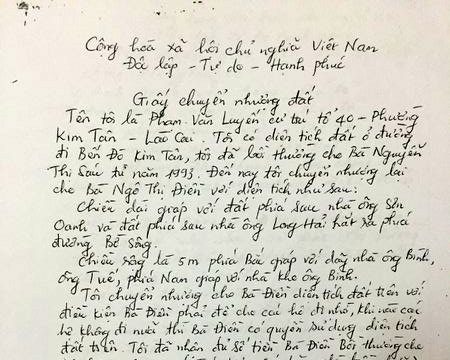 Công hoà xã hội chủ nghĩa Việt Nam
Độc lập - Tự do - Hạnh phúc
Giấy chuyển nhượng đất
Tên tôi là Phạm Văn Luyến cư tại tổ 40 - Phường
Kim Tân - Lào Cai Tôi có diện tích đất ở đường
đi Bến Đò Kim Tân, tôi đã bồi thường cho Bà Nguyễn
Thị Sáu từ năm 1993. Đến nay tôi chuyển nhượng lại
cho Bà Ngô Thị Điền với diện tích như sau:
Chiều dài giáp với đất phía sau nhà ông Sơn
Oanh và đất phía sau nhà ông Long Hải hắt ra phía
đường Bờ Sông.
Chiều rộng là 5m phía Bắc giáp với dãy nhà ông Bình,
ông Tuế, phía Nam giáp với nhà kho ông Bình.
Tôi chuyển nhượng cho Bà Điền diện tích đất trên với
điều kiện Bà Điền phải để cho các hộ đi nhờ, khi nào các
hộ không đi nữa thì Bà Điền có quyền sử dụng diện tích
đất trên. Tôi đã nhận đủ số tiền Bà Điền Bồi thường cho